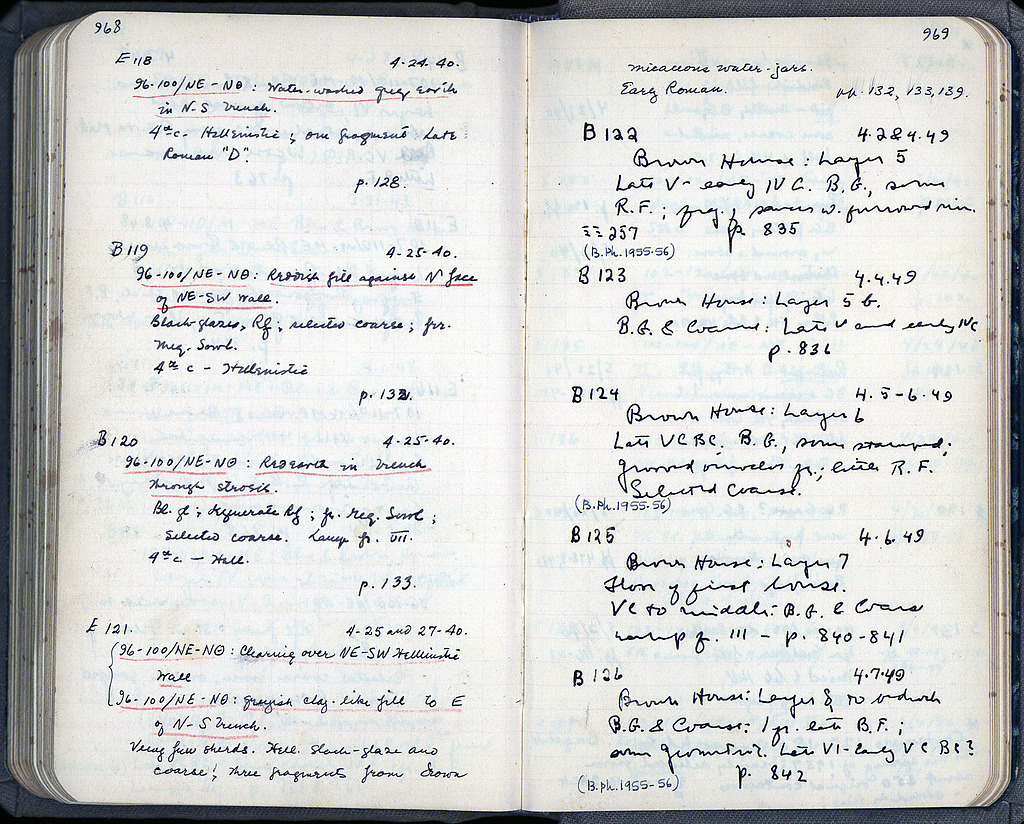 968
E 118 4-24-40.
96-100/NE-NΘ: Water-washed grey earth
in N-S trench.
4th c. Hellenistic; one fragment Late
Roman "D".
p. 128.
B 119 4-25-40.
96-100/NE-NΘ: Reddish fill against N face
of NE-SW Wall.
Black-glazes, Rf; selected coarse; frr.
Meg. Bowl.
4th c - Hellenistic
p. 132.
B 120 4-25-40.
96-100/NE-NΘ: Red earth in trench
through strosis.
Bl. gl; degenerate Rf; fr. Meg. Bowl;
selected coarse. Lamp fr. VII.
4th c - Hell.
p. 133.
E 121. 4-25 and 27-40.
96-100/NE-NΘ: Clearing over NE-SW Hellenistic
Wall
96-100/NE-NΘ: greyish clay-like fill to E
of N-S trench.
Very few sherds. Hell. black-glaze and
coarse; three fragments from brown
969
micaceous water-jars.
Early Roman. pp. 132, 133, 139.
B 122 4.2&4.49
Brown House: Layer 5
Late V - early IV C. B.G., some
R.F.; frg. saucer w. furrowed rim.
257 p. 835
(B.Ph. 1955-56)
B 123 4.4.49
Brown House: Layer 5 b.
B.G. & Coarse: Late V and early IV C
p. 836
B 124 4.5-6.49
Brown House: Layer 6
Late V C BC, B.G., some stamped;
grooved oinochoe fr.; little R.F.
Selected Coarse.
(B.Ph. 1955-56)
B 125 4.6.49
Brown House: Layer 7
Floor of first house.
V C to middle: B.G. & Coarse
Lamp fr. III - p. 840-841
B 126 4.7.49
Brown House: Layer 8 to bedrock
B.G. & Coarse: 1 fr. late B.F.;
some geometric. Late VI-early V C BC?
p. 842
(B.Ph. 1955-56)